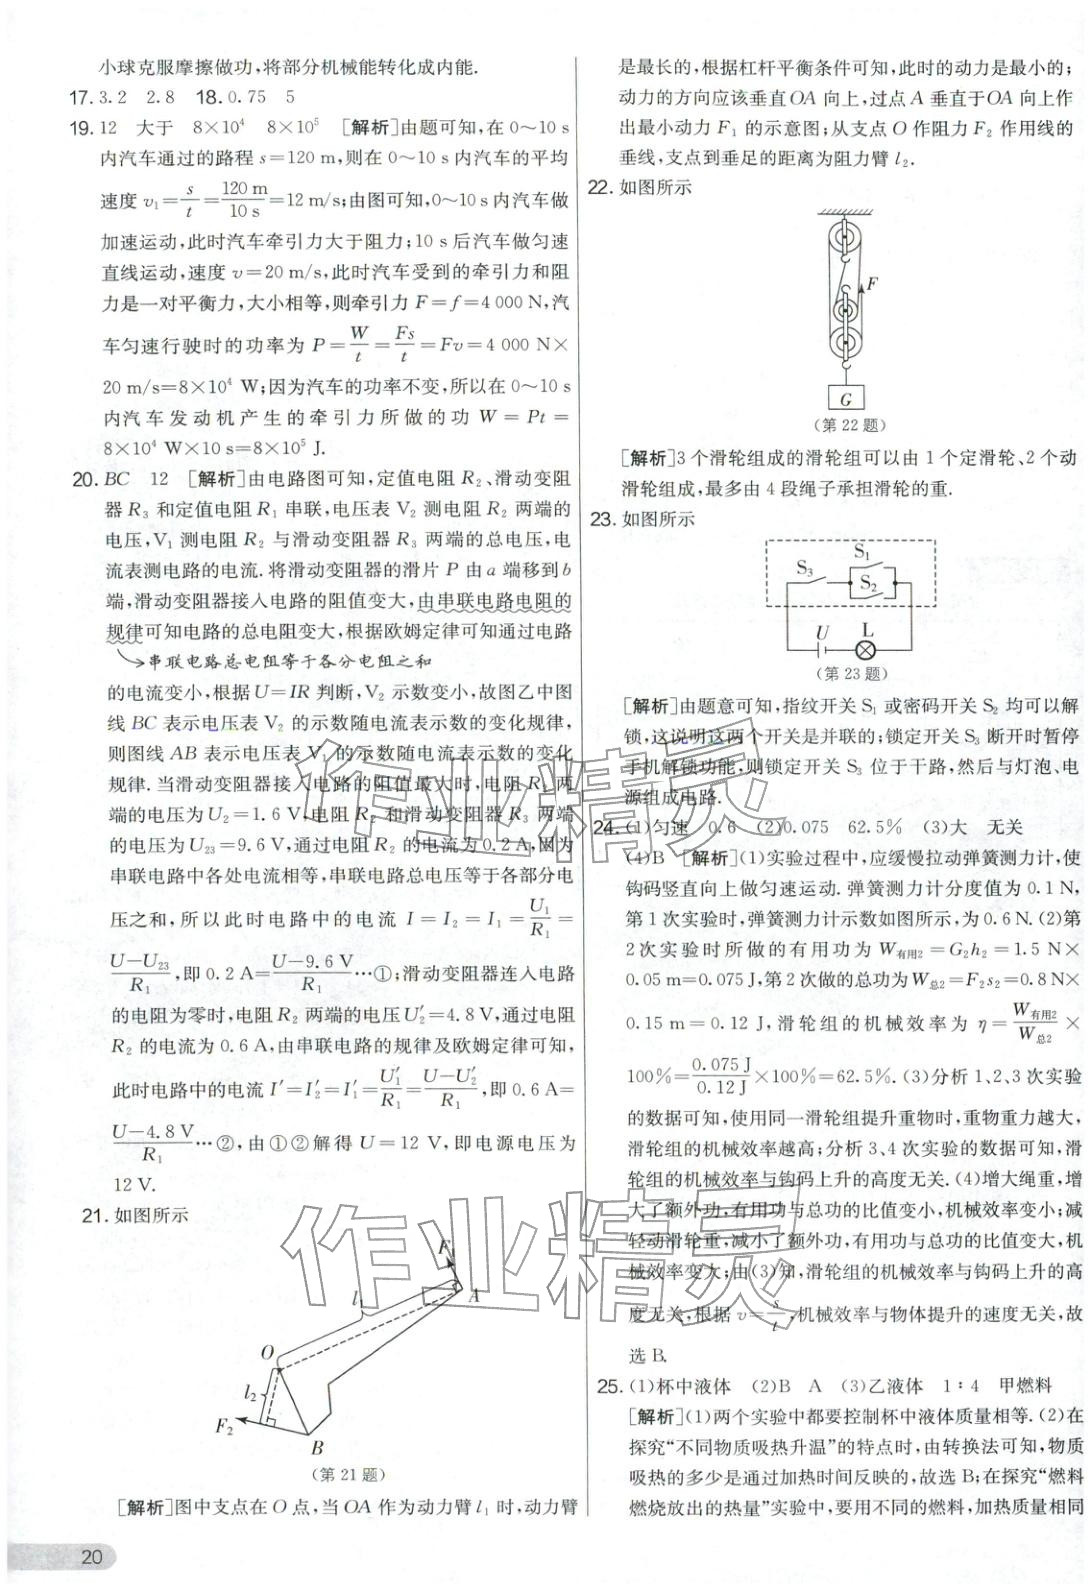 小球克服摩擦做功,将部分机械能转化成内能.
17. 3.2 2.8 18. 0.75 5
19. 12 大于 8×10⁴ 8×10⁵ [解析]由题可知,在 0～10 s
内汽车通过的路程 s=120 m,则在 0～10 s 内汽车的平均
速度 v₁=s/t=120 m/10 s=12 m/s;由图可知,0～10 s 内汽车做
加速运动,此时汽车牵引力大于阻力;10 s 后汽车做匀速
直线运动,速度 v=20 m/s,此时汽车受到的牵引力和阻
力是一对平衡力,大小相等,则牵引力 F=f=4 000 N,汽
车匀速行驶时的功率为 P=W/t=Fs/t=Fv=4 000 N×
20 m/s=8×10⁴ W;因为汽车的功率不变,所以在 0～10 s
内汽车发动机产生的牵引力所做的功 W=Pt=
8×10⁴ W×10 s=8×10⁵ J.
20. BC 12 [解析]由电路图可知,定值电阻 R₂、滑动变阻
器 R₃ 和定值电阻 R₁ 串联,电压表 V₂ 测电阻 R₂ 两端的
电压,V₁ 测电阻 R₂ 与滑动变阻器 R₃ 两端的总电压,电
流表测电路的电流.将滑动变阻器的滑片 P 由 a 端移到 b
端,滑动变阻器接入电路的阻值变大,由串联电路电阻的
规律可知电路的总电阻变大,根据欧姆定律可知通过电路
→串联电路总电阻等于各部分电阻之和
的电流变小,根据 U=IR 判断,V₂ 示数变小,故图乙中图
线 BC 表示电压表 V₂ 的示数随电流表示数的变化规律,
则图线 AB 表示电压表 V₁ 的示数随电流表示数的变化
规律.当滑动变阻器接入电路的阻值最大时,电阻 R₂ 两
端的电压为 U₂=1.6 V,电阻 R₂ 和滑动变阻器 R₃ 两端
的电压为 U₂₃=9.6 V,通过电阻 R₂ 的电流为 0.2 A,因为
串联电路中各处电流相等,串联电路总电压等于各部分电
压之和,所以此时电路中的电流 I=I₂=I₁=U₁/R₁=
(U-U₂₃)/R₁,即 0.2 A=(U-9.6 V)/R₁…①;滑动变阻器连入电路
的电阻为零时,电阻 R₂ 两端的电压 U₂′=4.8 V,通过电阻
R₂ 的电流为 0.6 A,由串联电路的规律及欧姆定律可知,
此时电路中的电流 I′=I₂′=I₁′=U₁′/R₁=(U-U₂′)/R₁,即 0.6 A=
(U-4.8 V)/R₁…②,由①②解得 U=12 V,即电源电压为
12 V.
21. 如图所示
F₁
A
l₁
O
l₂
F₂
B
(第 21 题)
[解析]图中支点在 O 点,当 OA 作为动力臂 l₁ 时,动力臂
20
是最长的,根据杠杆平衡条件可知,此时的动力是最小的;
动力的方向应该垂直 OA 向上,过点 A 垂直于 OA 向上作
出最小动力 F₁ 的示意图;从支点 O 作阻力 F₂ 作用线的
垂线,支点到垂足的距离为阻力臂 l₂.
22. 如图所示
F
G
(第 22 题)
[解析]3 个滑轮组成的滑轮组可以由 1 个定滑轮、2 个动
滑轮组成,最多由 4 段绳子承担滑轮的重.
23. 如图所示
S₁
S₃
S₂
U
L
(第 23 题)
[解析]由题意可知,指纹开关 S₁ 或密码开关 S₂ 均可以解
锁,这说明这两个开关是并联的;锁定开关 S₃ 断开时暂停
手机解锁功能,则锁定开关 S₃ 位于干路,然后与灯泡、电
源组成电路.
24. (1)匀速 0.6 (2)0.075 62.5% (3)大 无关
(4)B [解析](1)实验过程中,应缓慢拉动弹簧测力计,使
钩码竖直向上做匀速运动.弹簧测力计分度值为 0.1 N,
第 1 次实验时,弹簧测力计示数如图所示,为 0.6 N.(2)第
2 次实验时所做的有用功为 W有用2=G₂h₂=1.5 N×
0.05 m=0.075 J,第 2 次做的总功为 W总2=F₂s₂=0.8 N×
0.15 m=0.12 J,滑轮组的机械效率为 η=W有用2/W总2×
100%=0.075 J/0.12 J×100%=62.5%.(3)分析 1、2、3 次实验
的数据可知,使用同一滑轮组提升重物时,重物重力越大,
滑轮组的机械效率越高;分析 3、4 次实验的数据可知,滑
轮组的机械效率与钩码上升的高度无关.(4)增大绳重,增
大了额外功,有用功与总功的比值变小,机械效率变小;减
轻动滑轮重,减小了额外功,有用功与总功的比值变大,机
械效率变大;由(3)知,滑轮组的机械效率与钩码上升的高
度无关,根据 v=s/t,机械效率与物体提升的速度无关,故
选 B.
25. (1)杯中液体 (2)B A (3)乙液体 1∶4 甲燃料
[解析](1)两个实验中都要控制杯中液体质量相等.(2)在
探究“不同物质吸热升温”的特点时,由转换法可知,物质
吸热的多少是通过加热时间反映的,故选 B;在探究“燃料
燃烧放出的热量”实验中,要用不同的燃料,加热质量相同
作业精灵
作业精灵